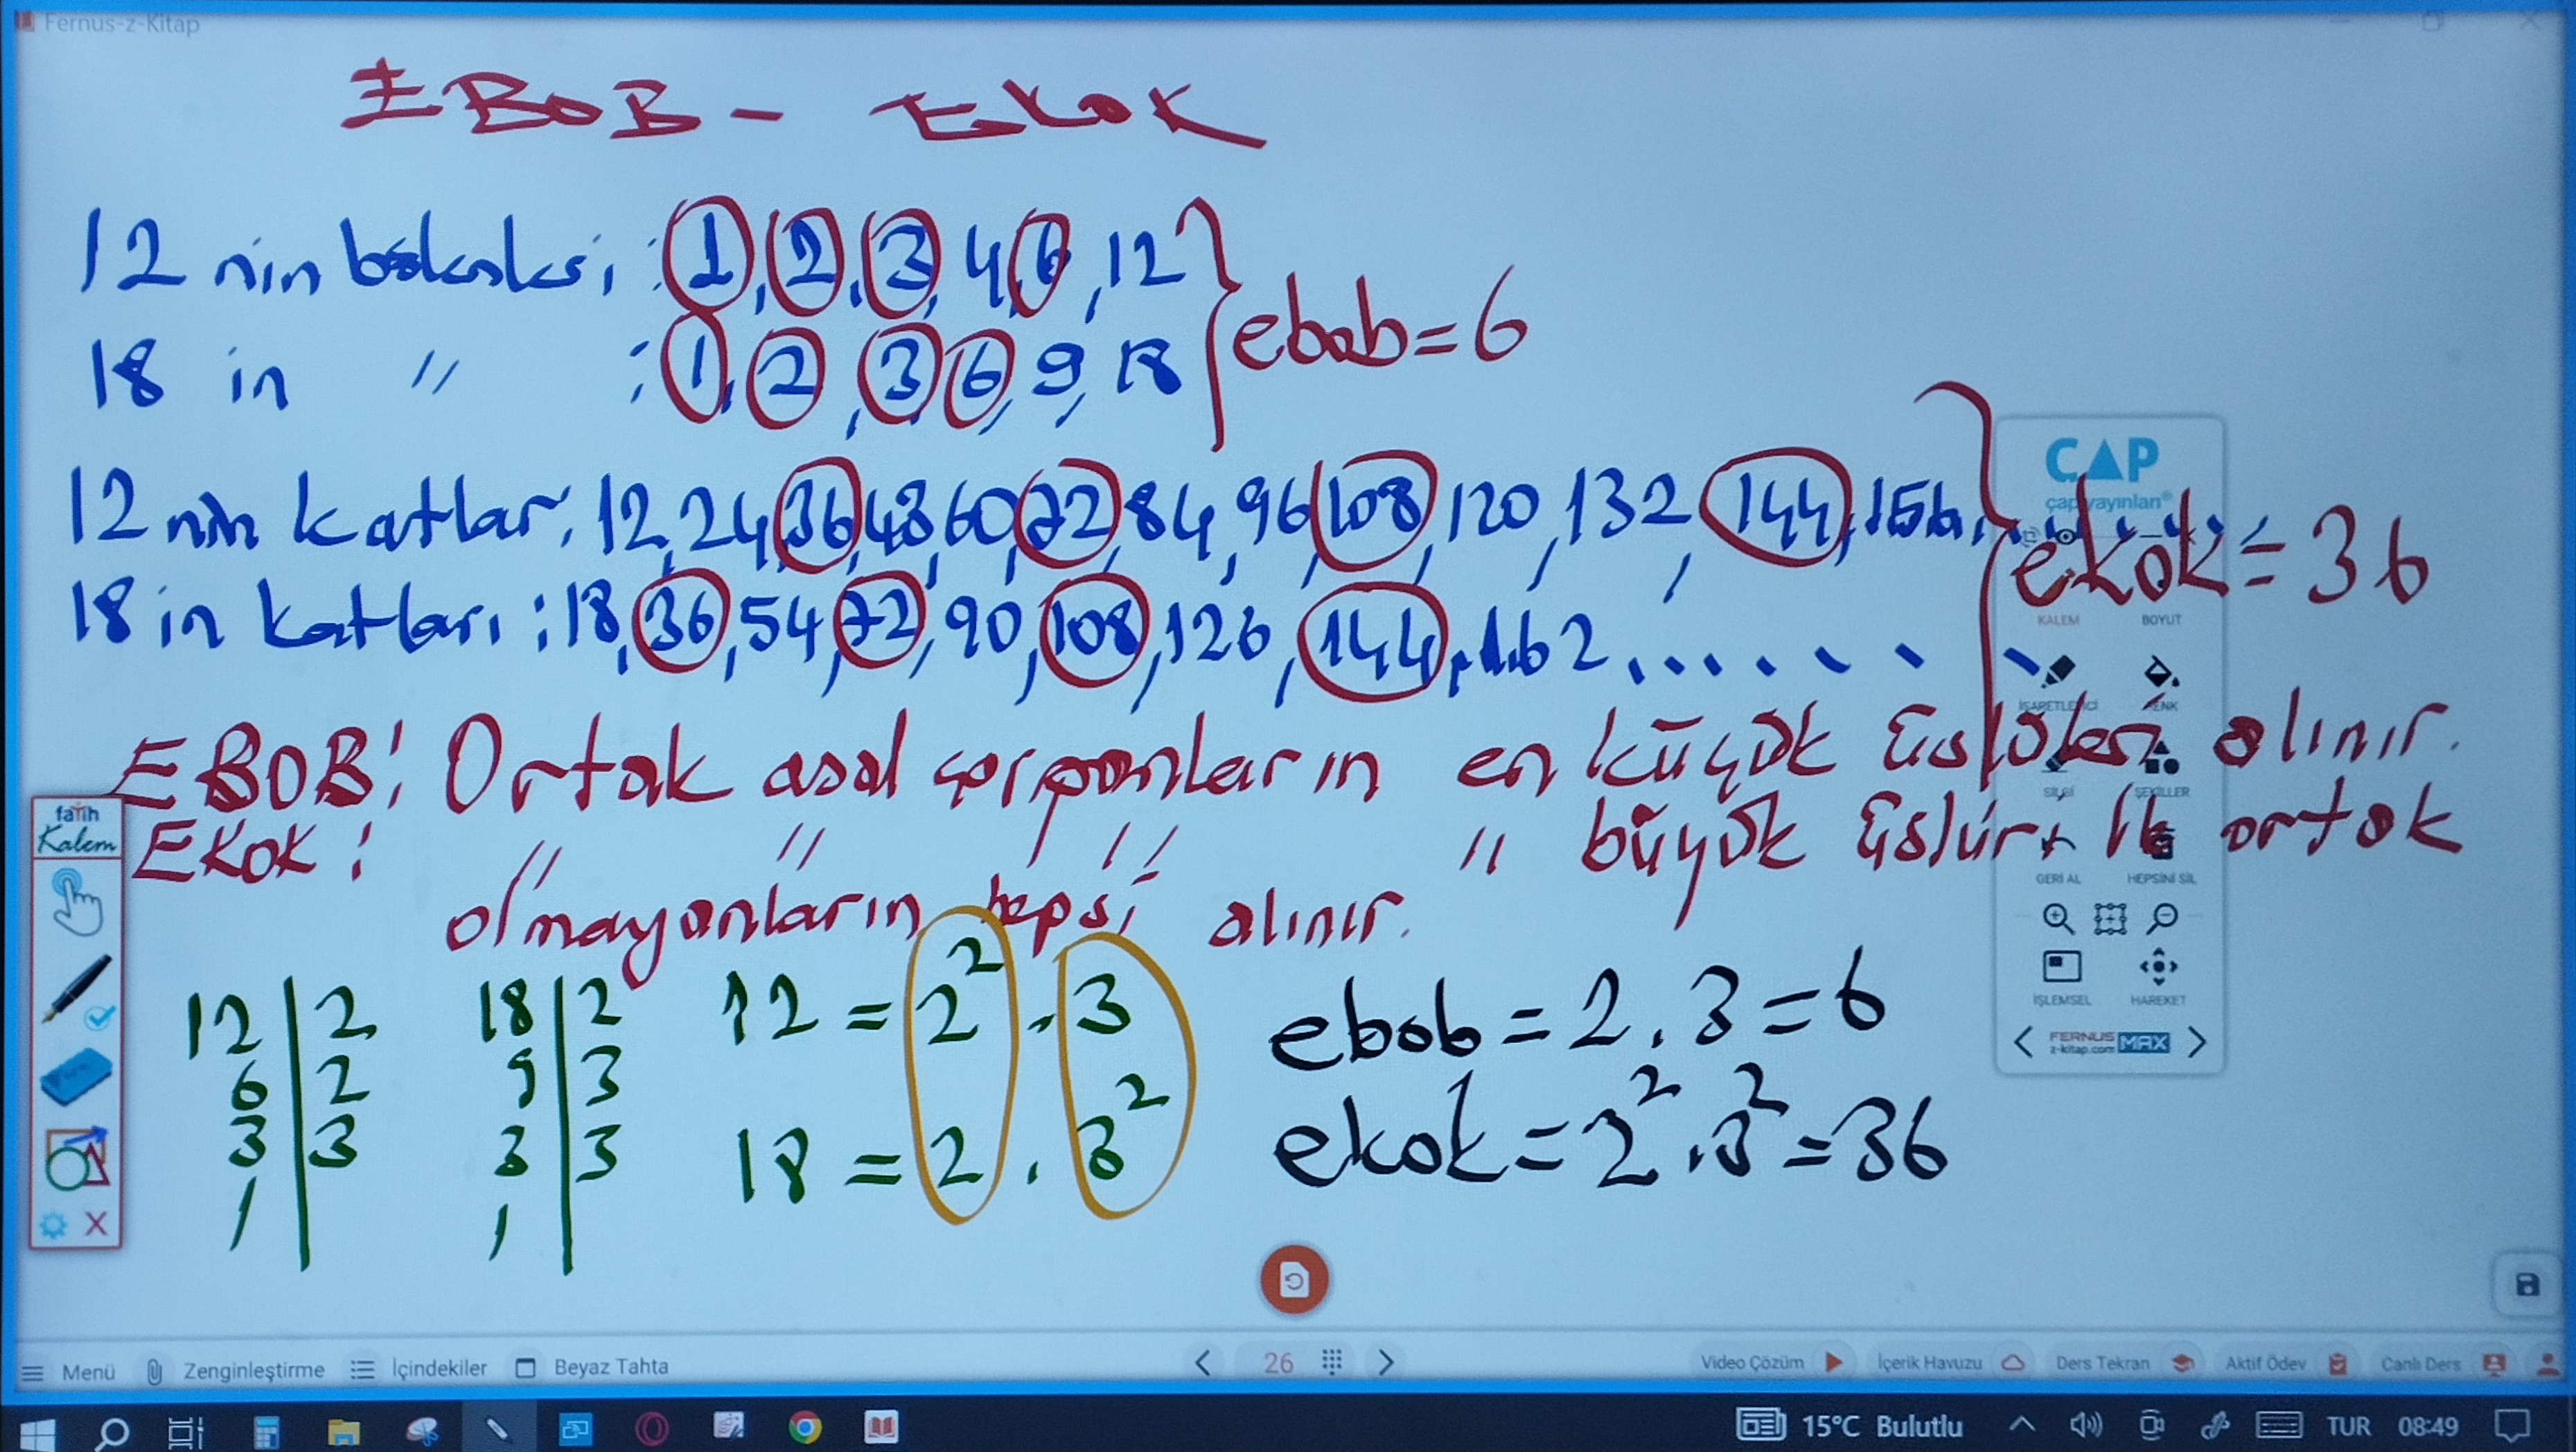 Fernus-z-Kitap
EBOB - EKOK
12 nin bölenleri : 1, 2, 3, 4, 6, 12
18 in " : 1, 2, 3, 6, 9, 18
ebob = 6
12 nin katlar, 12, 24, 36, 48, 60, 72, 84, 96, 108, 120, 132, 144, 156, ......
18 in katları : 18, 36, 54, 72, 90, 108, 126, 144, 162, .......
ekok = 36
EBOB: Ortak asal çarpanların en küçük üslüleri alınır.
EKOK: " " " " büyük üslür, ortak
olmayanların hepsi alınır.
12 | 2
6 | 2
3 | 3
1
18 | 2
9 | 3
3 | 3
1
12 = 2² . 3
18 = 2 . 3²
ebob = 2 . 3 = 6
ekok = 2² . 3² = 36
ÇAP
çap yayınları®
KALEM BOYUT
İŞARETLEYİCİ RENK
SİLGİ ŞEKİLLER
GERİ AL HEPSİNİ SİL
İŞLEMSEL HAREKET
FERNUS
z-kitap.com MAX
fatih
Kalem
Menü Zenginleştirme İçindekiler Beyaz Tahta 26 Video Çözüm İçerik Havuzu Ders Tekran Aktif Ödev Canlı Ders
15°C Bulutlu TUR 08:49